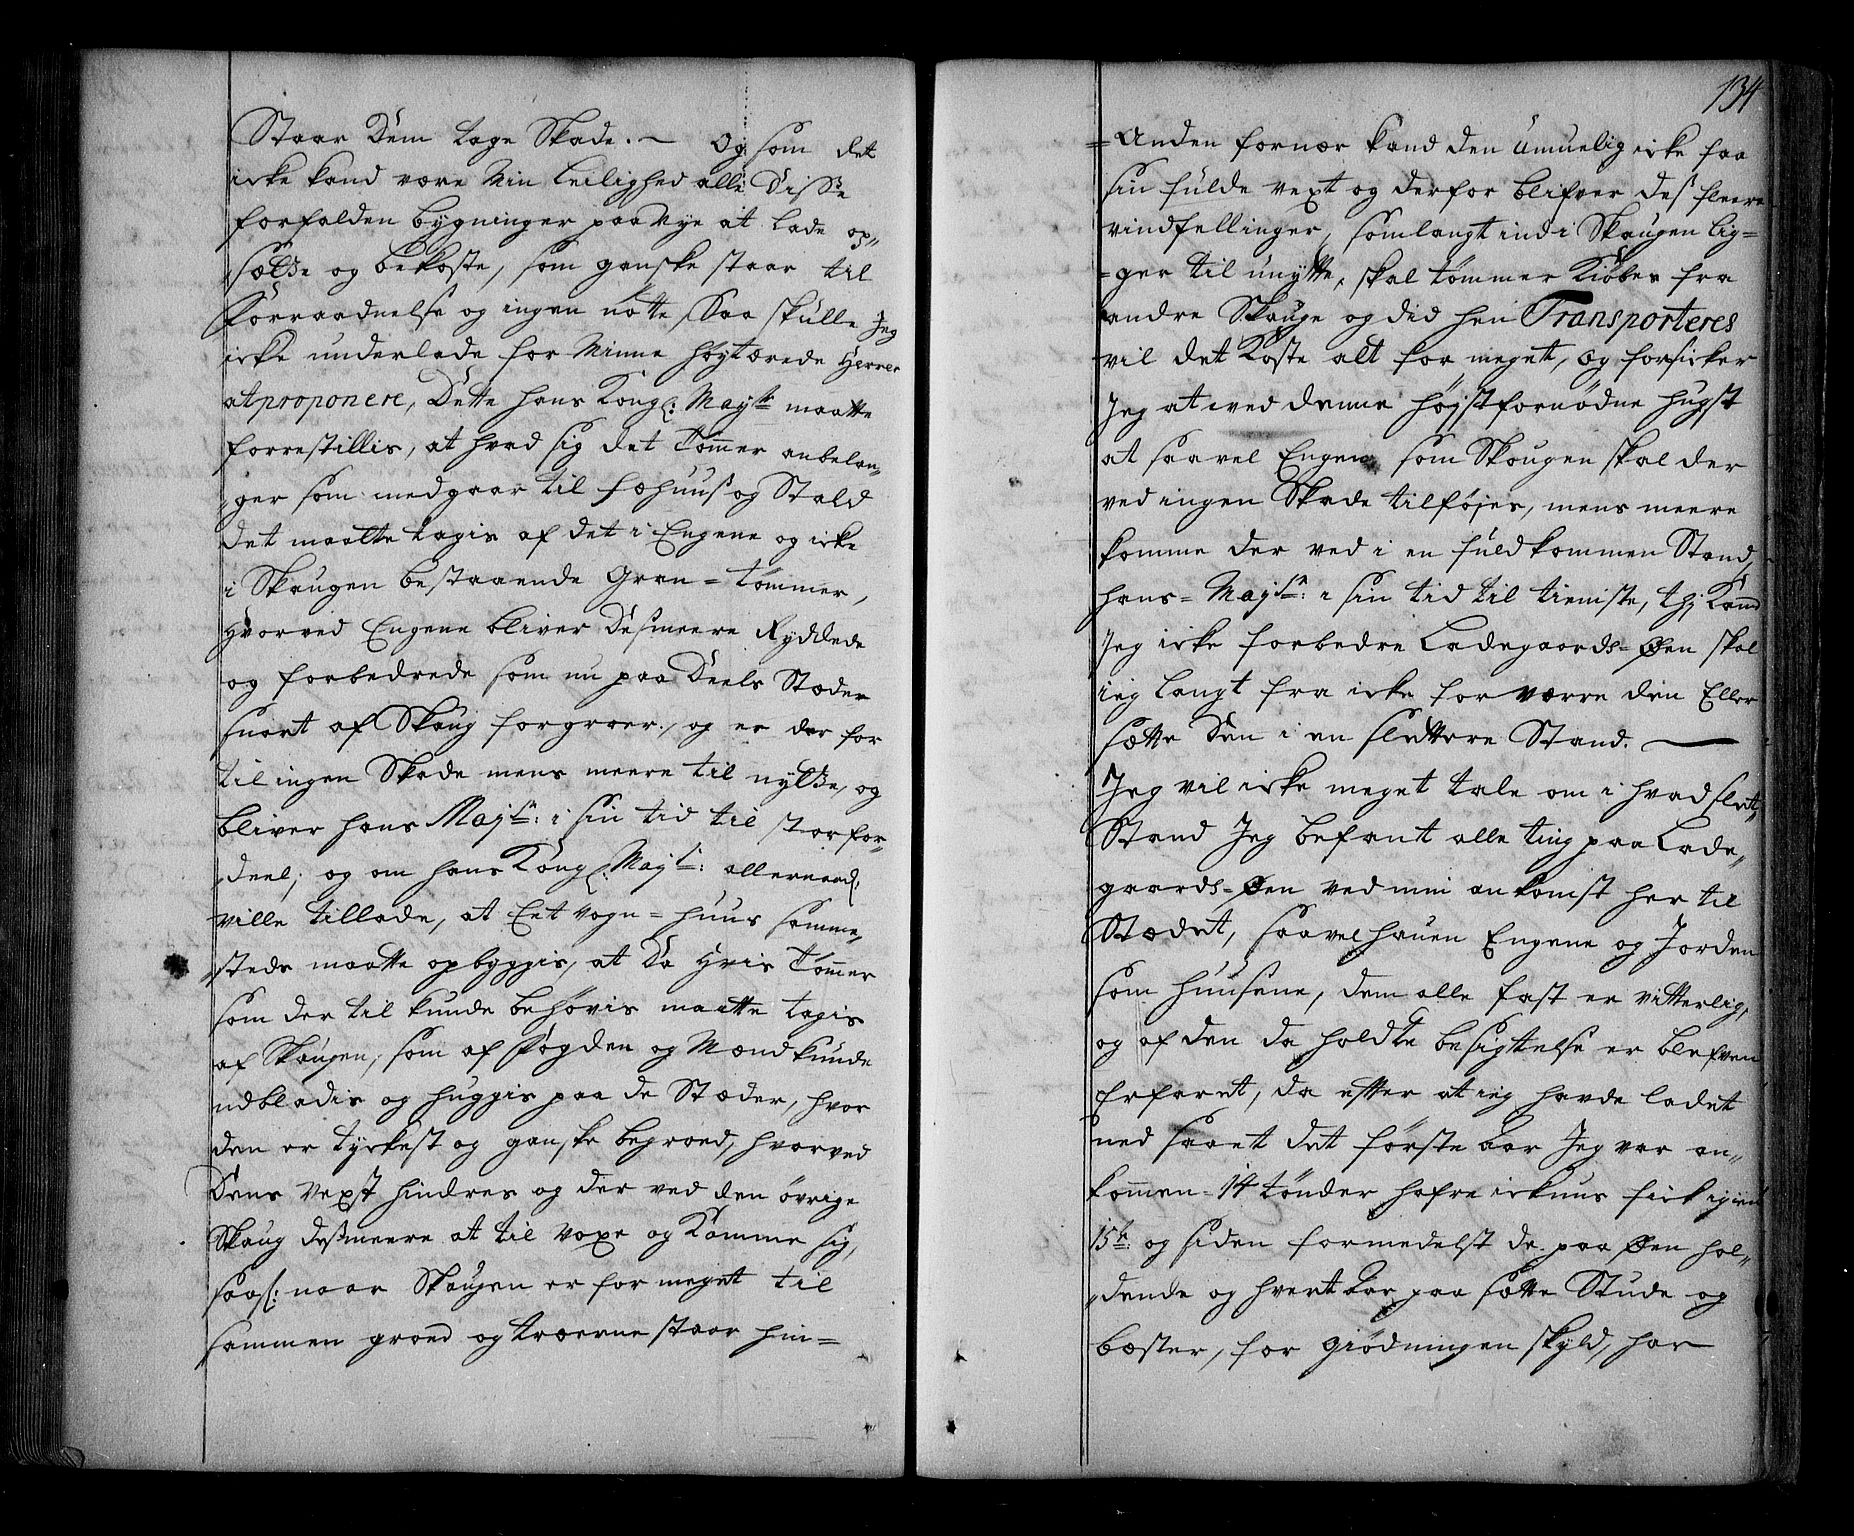 Staar Dem tage Skade. ~ Og som det
icke kand være Min Leilighed alle Disse
forfalden bygninger paa Nye at lade op„
sætte og bekoste, som ganske staar til
Forraadnelse og ingen nøtte, Saa skulle Jeg
icke underlade for Minne Høytærede Herrer
at proponere, Dette hans Kongl: Mayts maatte
forrestillis, at hvad sig det Tømer anbelan„
„ger som medgaar til Fæhuus og Stald
det maatte tagis af det i Engene og icke
i Skaugen bestaaende Gran = Tømmer,
Hvorved Engene bliver Desmeere Ryddede
og forbedrede som nu paa Deels Stæder
snart af Skaug forgroer, og er der for
til ingen Skade mens meere til nytte, og
bliver hans Mayts: i sin tid til stor for„
„deel; og om hans Kongl: Mayts: allernaad:
ville tillade, at Eet Vogn = huus samme„
„steds maatte opbyggis, at Da Hvis Tømer
som der til kunde behøvis maatte tagis
af Skaugen, som af Fogden og Mænd kunde
udbladis og huggis paa de Stæder, hvor
den er tyckest og ganske begroed, hvorved
Dens Vext hindres og der ved den øvrige
Skaug desmeere at til voxe og Komme sig,
saasl: naar Skaugen er for meget til
sammen groed og træerne staar hin=
134
=Anden fornær kand den umuelig icke faa
sin fulde vext og derfor blifver des fleere
vindfellinger, som langt ind i Skaugen lig=
=ger til unytte, skal tømmer Kiøbes fra
andre Skauge og did hen Transporteres
vil det Koste alt for meget, og forsicker
Jeg at ved denne høystfornødne hugst
at saavel Engen som Skougen skal der
ved ingen Skade tilføjes, mens meere
komme der ved i en fuldkommen Stand,
hans = Mayts: i sin tid til tieniste, thj Kand
Jeg icke forbedre Ladegaards=Øen skal
ieg langt fra icke forværre den Eller
sætte Den i en slettere Stand. —
Jeg vil icke meget tale om i hvad slet„
Stand Jeg befant alle ting paa Lade„
gaards=Øen ved min ankomst her til
Stædet, saavel hauen Engene og Jorden
som huusene, dem alle fast er vitterlig,
og af den da holdte besigttelse er blefven
Erfaret, da efter at ieg havde ladet
ned saaet det første Aar Jeg var an„
kommen = 14 tønder hafre ickuns fick igien
15tr: og siden formedelst de paa Øen hol„
„dende og hvert Aar paa sætte Stude og
bæster, for giødningen skyld, har